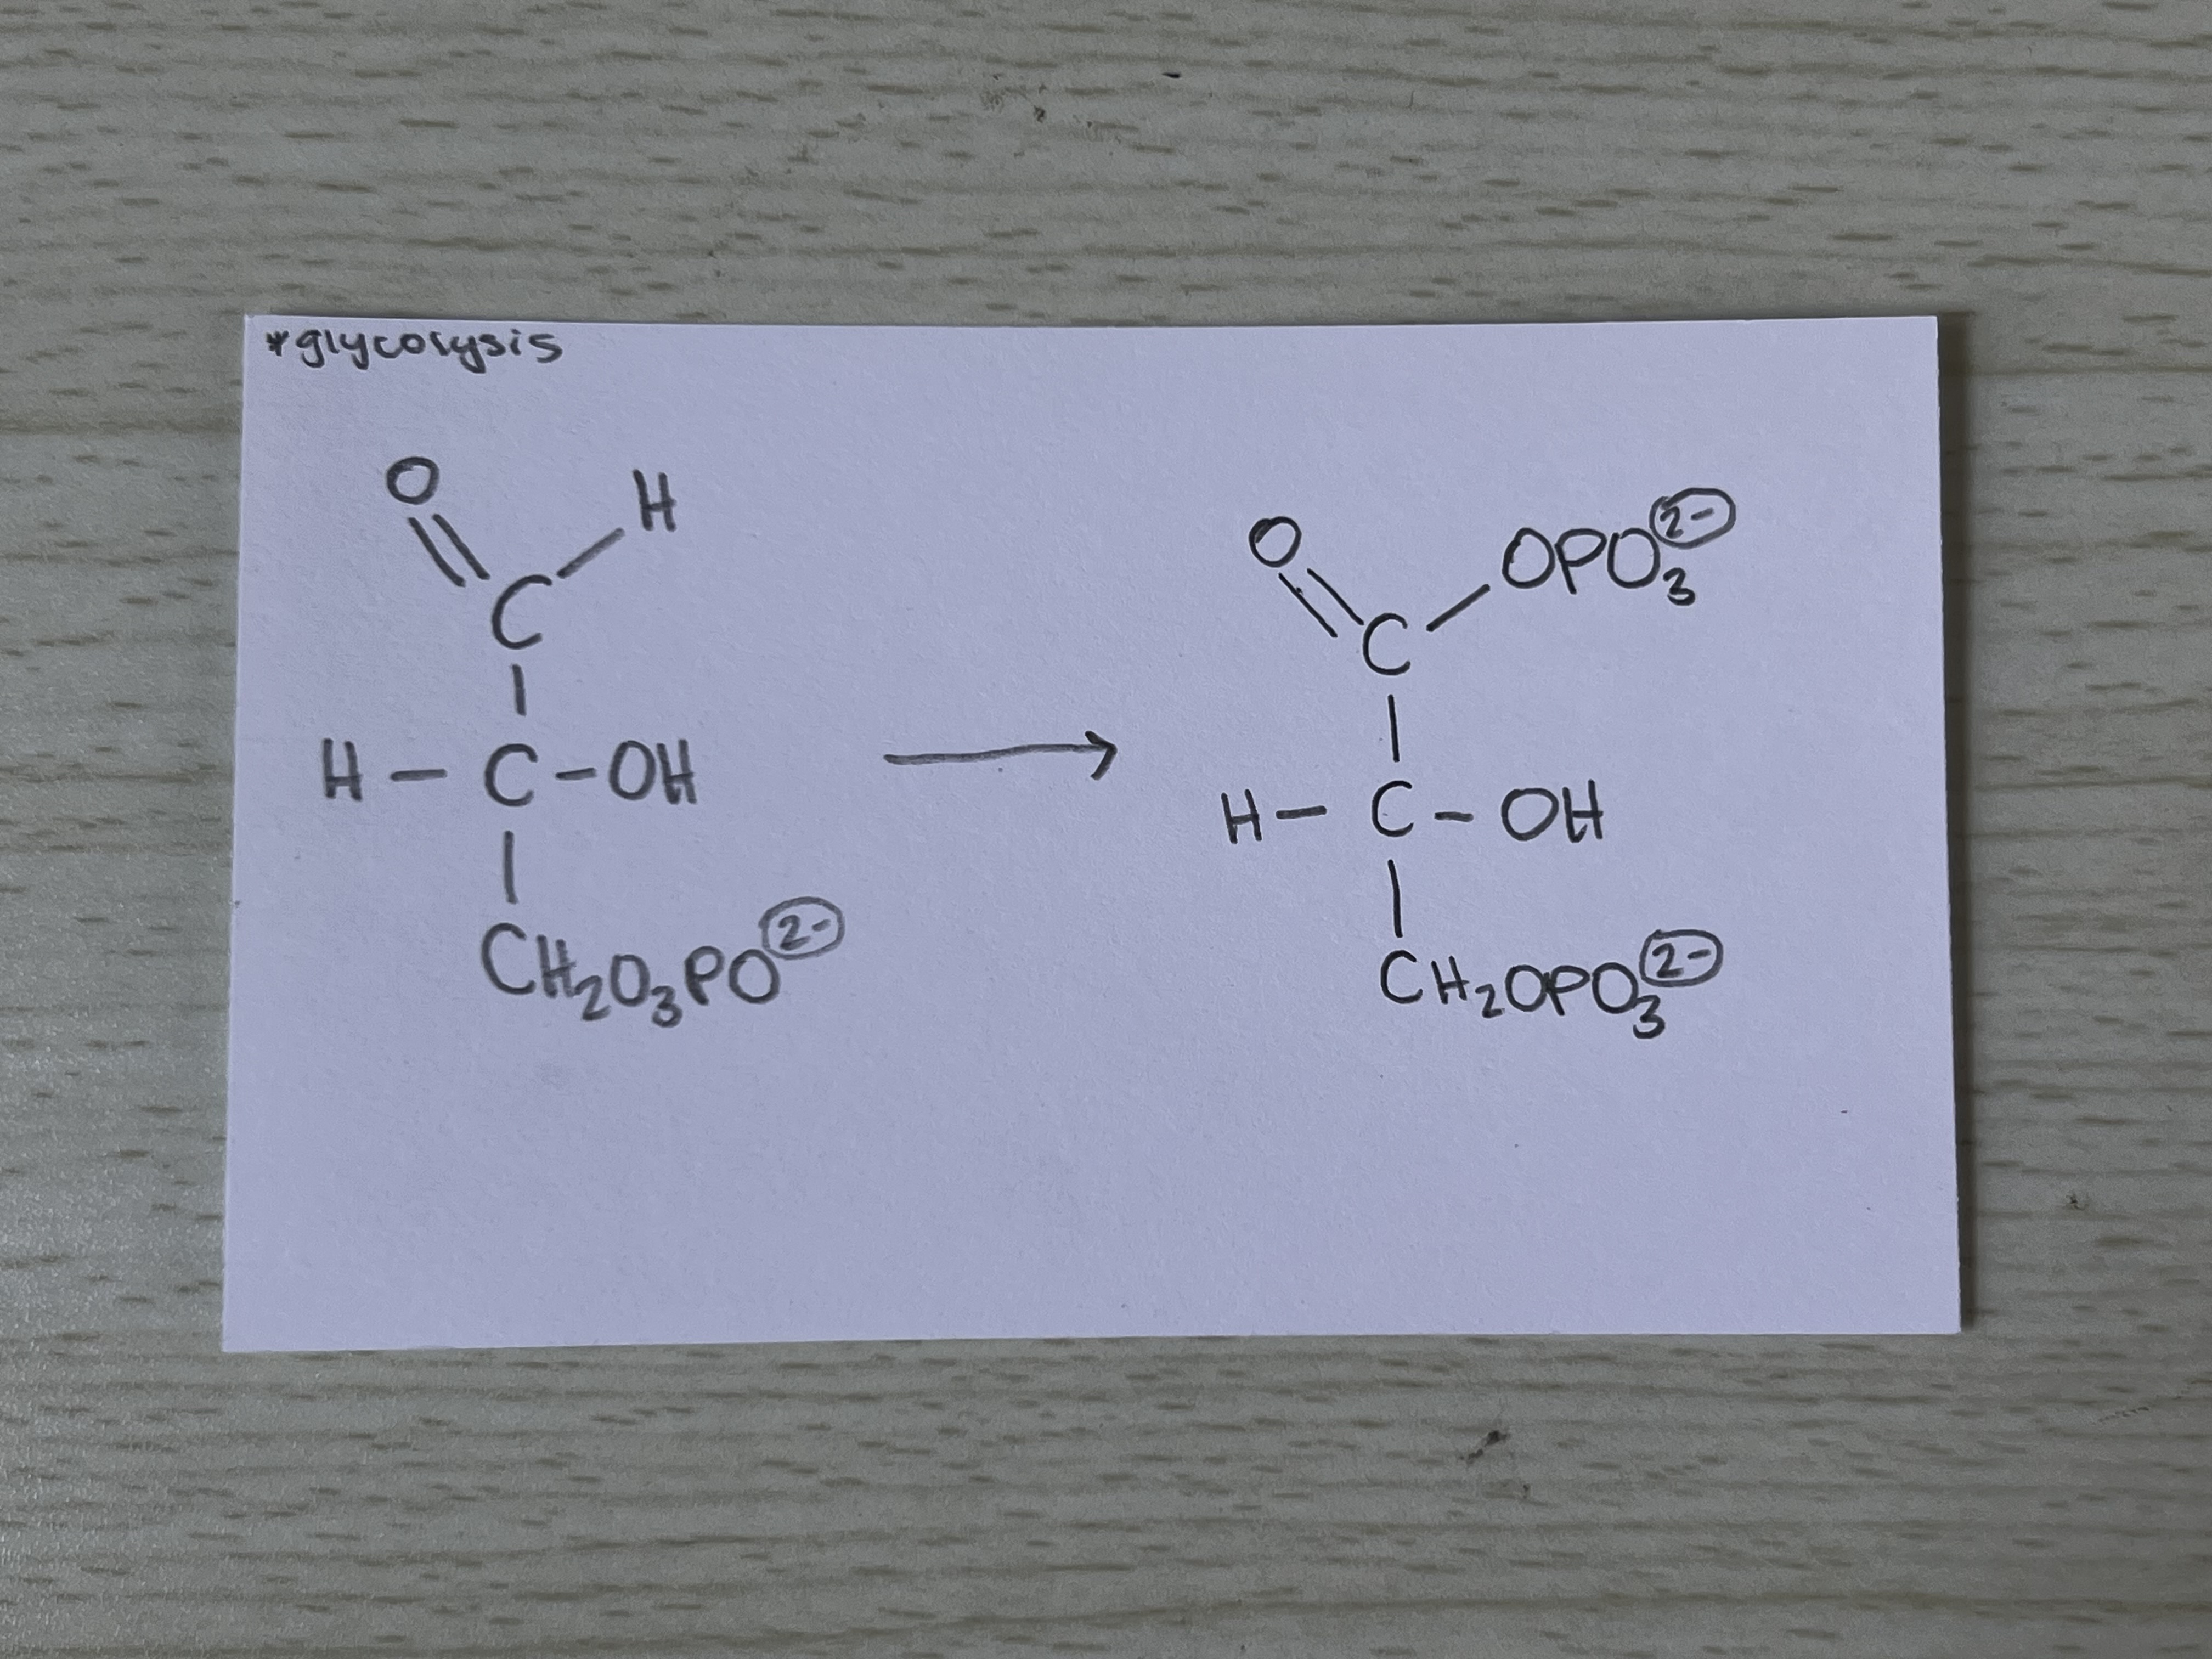 *glycolysis
O H
C
H - C - OH
CH₂O₃PO²⁻
O OPO₃²⁻
C
H - C - OH
CH₂OPO₃²⁻